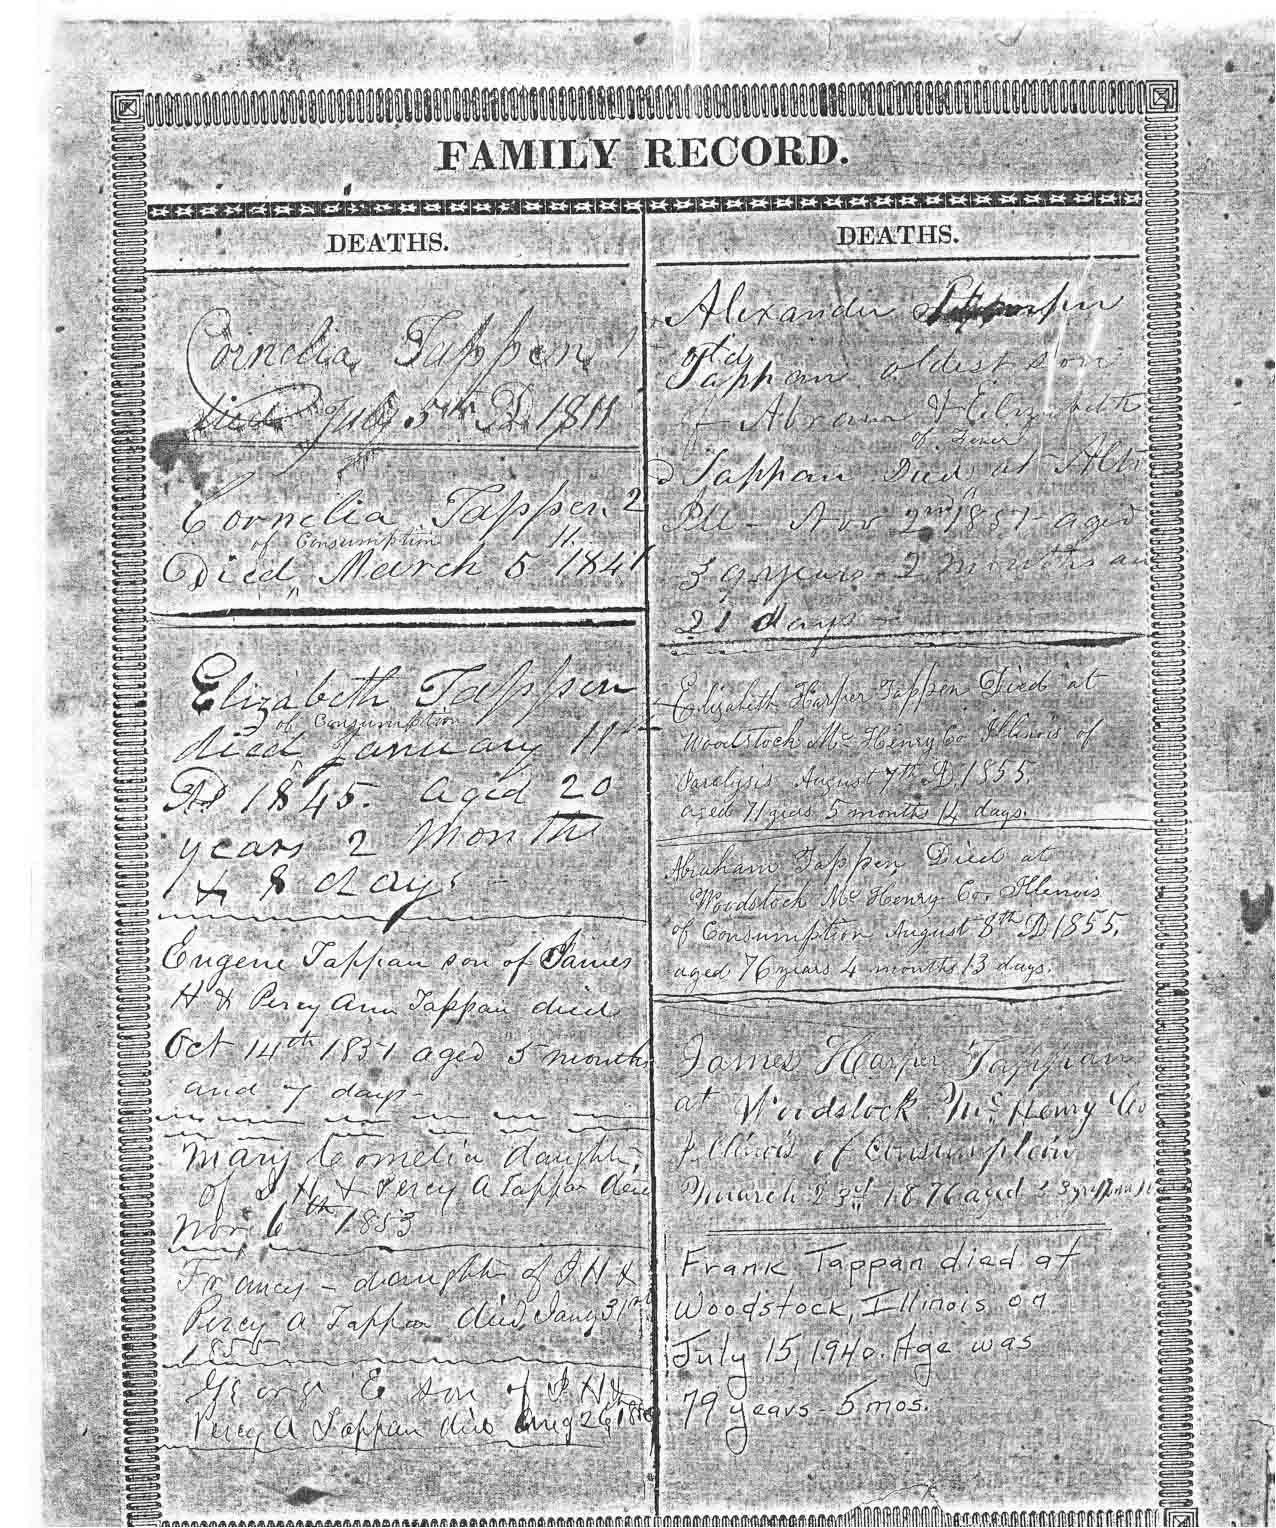 FAMILY RECORD.
DEATHS.
Cornelia Tappen 1
died July 5th D. 1811
Cornelia Tappen 2
of Consumption 11.
Died March 5 1841
Elizabeth Tappen
of Consumption
died January 11th
AD 1845. aged 20
years 2 Month
& 8 days
Eugene Tappan son of James
H & Percy Ann Tappan died
Oct 14th 1851 aged 5 months
and 7 days-
Mary Cornelia daughter
of J H & Percy A Tappan died
Nov 6th 1853
Francis - daughter of J H &
Percy A Tappan died Jany 31
1855
George E son of J H &
Percy A Tappan died Aug 26
DEATHS.
Alexander
Tappan oldest son
of Abram & Elizabeth
of Fever
Tappan Died at
Ill - Nov 2nd 1857 aged
years 2 months an
21 days
Elizabeth Harper Tappen Died at
Woodstock Mc Henry Co Illinois of
Paralysis August 7th D. 1855.
aged 71 years 5 months 14 days.
Abraham Tappen Died at
Woodstock Mc Henry Co. Illinois
of Consumption August 8th D 1855.
aged 76 years 4 months 13 days.
James Harper Tappan
at Woodstock Mc Henry Co
Illinois of Consumption
March 23d 1876 aged
Frank Tappan died at
Woodstock, Illinois on
July 15, 1940. Age was
79 years - 5 mos.